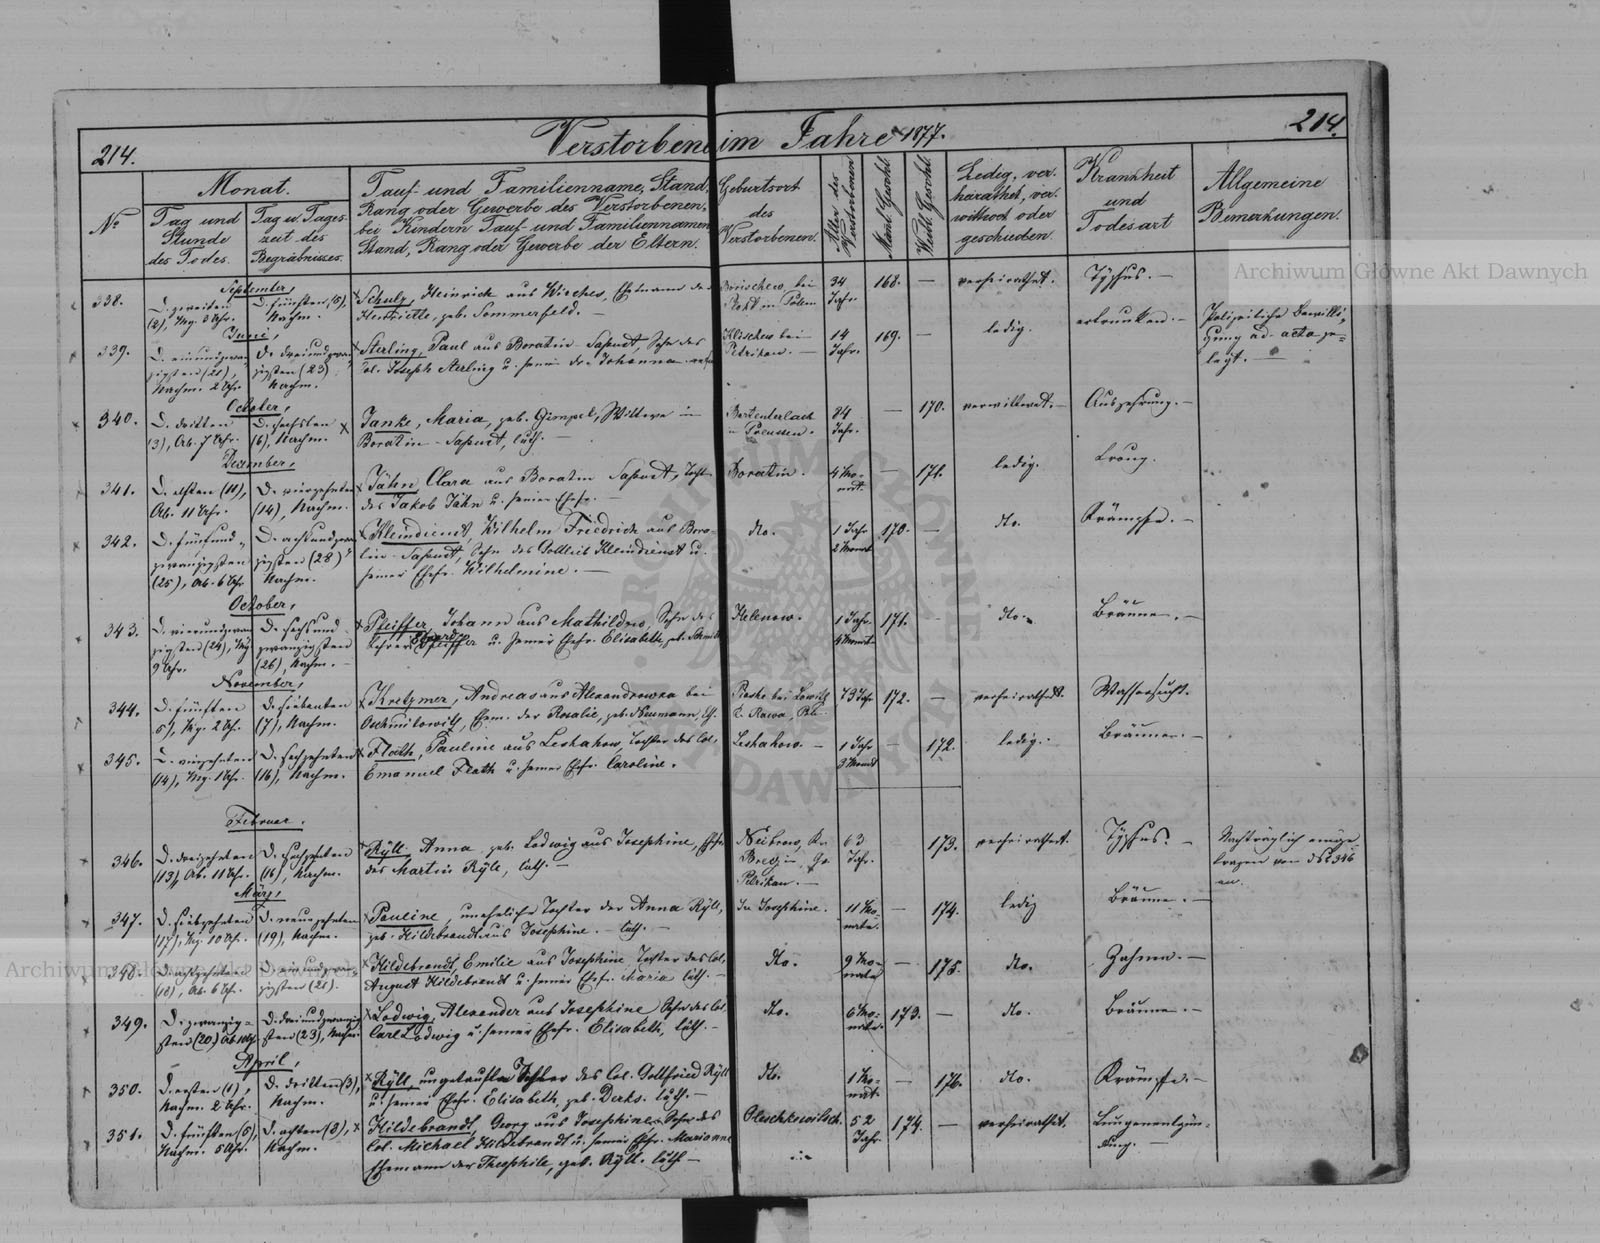 214.
Verstorbene im Jahre 1877.
214.
No
Monat.
Tag und
Stunde
des Todes.
Tag u. Tages-
zeit des
Begräbnisses.
Tauf- und Familienname, Stand,
Rang oder Gewerbe des Verstorbenen,
bei Kindern Tauf- und Familiennamen
Stand, Rang oder Gewerbe der Eltern.
Geburtsort
des
Verstorbenen.
Alter des
Verstorbenen
Männl. Geschl.
Weibl. Geschl.
Ledig, ver-
heirathet, ver-
wittwet oder
geschieden.
Krankheit
und
Todesart
Allgemeine
Bemerkungen.
Archiwum Główne Akt Dawnych
September,
338.
D. zweiten
(2), Mg. 3 Uhr.
D. fünften (5),
Nachm.
Schulz, Heinrich aus Ehemann der
Henriette, geb. Sommerfeld. —
bei
in Polen
34
Jahr.
168. —
verheirathet.
Typhus. —
Juni,
339.
D. einundzwan-
zigsten (21),
Nachm. 2 Uhr.
D. dreiundzwan-
zigsten (23)
Nachm.
Sterling, Paul aus Boratin, Sohn des
Col. Joseph Sterling u. der Johanna
Klischew bei
Petrikau. —
14
Jahr.
169. —
ledig.
ertrunken. —
Polizeiliche Bewilli-
gung ad acta ge-
legt. —
October,
340.
D. dritten
(3), Ab. 7 Uhr.
D. sechsten
(6), Nachm.
Janke, Maria, geb. Gimpel, Wittwe in
Boratin, luth. —
in Preussen.
84
Jahr.
— 170.
verwittwet. —
Auszehrung. —
Dezember,
341.
D. elften (11),
Ab. 11 Uhr.
D. vierzehnten
(14), Nachm.
Jähn, Clara aus Boratin, Tocht.
des Jakob Jähn u. seiner Ehefr. —
Boratin.
4 Mo-
nat.
— 171.
ledig.
342.
D. fünfund-
zwanzigsten
(25), Ab. 6 Uhr
D. achtundzwan-
zigsten (28)
Nachm.
Kleindienst, Wilhelm Friedrich aus Bora-
tin, Sohn des Gottlieb Kleindienst u.
seiner Ehefr. Wilhelmine. —
dto.
1 Jahr
2 Monat
170. —
dto.
Krämpfe. —
October,
343.
D. vierundzwan-
zigsten (24), Mg
9 Uhr.
D. sechsund-
zwanzigsten
(26), Nachm. —
Pfeiffer, Johann aus Mathildow, Sohn des
Lehrers Pfeiffer u. seiner Ehefr. Elisabeth, geb.
Helenow.
1 Jahr
4 Monat
171. —
dto.
Bräune. —
November,
344.
D. fünften
5), Mg. 2 Uhr.
D. siebenten
(7), Nachm.
Kretzmer, Andreas aus Alexandrowka bei
Oschmilowitz, Ehem. der Rosalie, geb. Neumann,
bei Lowitz
Rawa,
73 Jahr
172. —
verheirathet.
Wassersucht.
345.
D. vierzehnten
(14), Mg. 1 Uhr.
D. sechzehnten
(16), Nachm.
Flath, Pauline aus Leshakow, Tochter des Col.
Emanuel Flath u. seiner Ehefr. Caroline.
Leshakow. —
1 Jahr
3 Monat
— 172.
ledig.
Bräune. —
Februar.
346.
D. dreizehnten
(13), Ab. 11 Uhr.
D. sechzehnten
(16), Nachm.
Ryll, Anna, geb. Lodwig aus Josephine, Ehefr.
des Martin Ryll, luth. —
Petrikau. —
63
Jahr.
173.
verheirathet.
Typhus. —
Nachträglich einge-
tragen von No 346
an.
März,
347.
D. siebzehnten
(17), Mg. 10 Uhr.
D. neunzehnten
(19), Nachm.
Pauline, uneheliche Tochter der Anna Ryll,
geb. Hildebrandt aus Josephine. — luth. —
In Josephine.
11 Mo-
nate.
— 174.
ledig
Bräune. —
Archiwum Główne Akt Dawnych
348.
D. achtzehnten
(18), Ab. 6 Uhr.
D. einundzwan-
zigsten (21).
Hildebrandt, Emilie aus Josephine Tochter des Col.
August Hildebrandt u. seiner Ehefr. Maria luth. —
dto.
9 Mo-
nate
— 175.
dto.
Zahnen. —
349.
D. zwanzig-
sten (20)
D. dreiundzwanzig-
sten (23), Nachm.
Lodwig, Alexander aus Josephine Sohn des Col.
Carl Lodwig u. seiner Ehefr. Elisabeth, luth. —
dto.
6 Mo-
nate.
173. —
dto.
Bräune. —
April,
350.
D. ersten (1),
Nachm. 2 Uhr.
D. dritten (3),
Nachm.
Ryll, ungetaufte Tochter des Col. Gottfried Ryll
u. seiner Ehefr. Elisabeth, geb. Derks. luth. —
dto.
1 Mo-
nat.
— 176.
dto.
Krämpfe. —
351.
D. fünften (5),
Nachm. 5 Uhr.
D. achten (8),
Nachm.
Hildebrandt, Georg aus Josephine, Sohn des
Col. Michael Hildebrandt u. seiner Ehefr. Marianne
Ehemann der Theophile, geb. Ryll. luth —
Oleschkowitsch.
52
Jahr.
174. —
verheirathet.
Lungenentzün-
dung. —